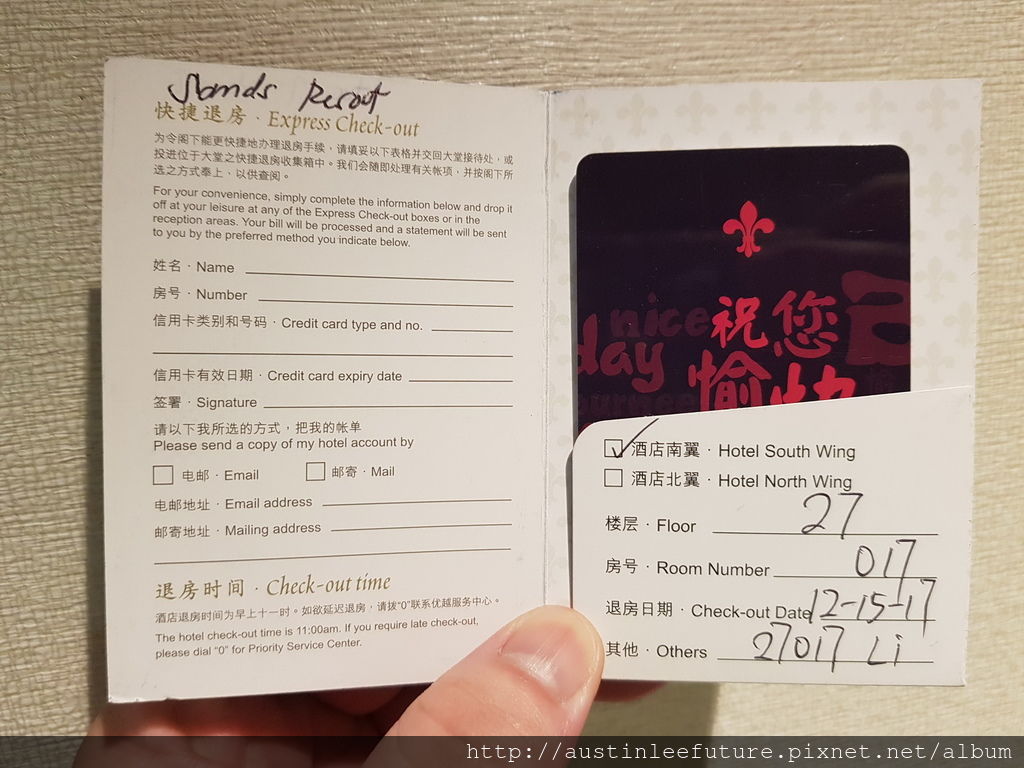 Sands Resort
快捷退房 · Express Check-out
为令阁下能更快捷地办理退房手续，请填妥以下表格并交回大堂接待处，或
投进位于大堂之快捷退房收集箱中。我们会随即处理有关帐项，并按阁下所
选之方式奉上，以供查阅。
For your convenience, simply complete the information below and drop it
off at your leisure at any of the Express Check-out boxes or in the
reception areas. Your bill will be processed and a statement will be sent
to you by the preferred method you indicate below.
姓名 · Name
房号 · Number
信用卡类别和号码 · Credit card type and no.
信用卡有效日期 · Credit card expiry date
签署 · Signature
请以下我所选的方式，把我的帐单
Please send a copy of my hotel account by
电邮 · Email 邮寄 · Mail
电邮地址 · Email address
邮寄地址 · Mailing address
退房时间 · Check-out time
酒店退房时间为早上十一时。如欲延迟退房，请拨“0”联系优越服务中心。
The hotel check-out time is 11:00am. If you require late check-out,
please dial “0” for Priority Service Center.
nice
day
祝您
愉快
酒店南翼 · Hotel South Wing
酒店北翼 · Hotel North Wing
楼层 · Floor 27
房号 · Room Number 017
退房日期 · Check-out Date 12-15-17
其他 · Others 27017 Li
http://austinleefuture.pixnet.net/album